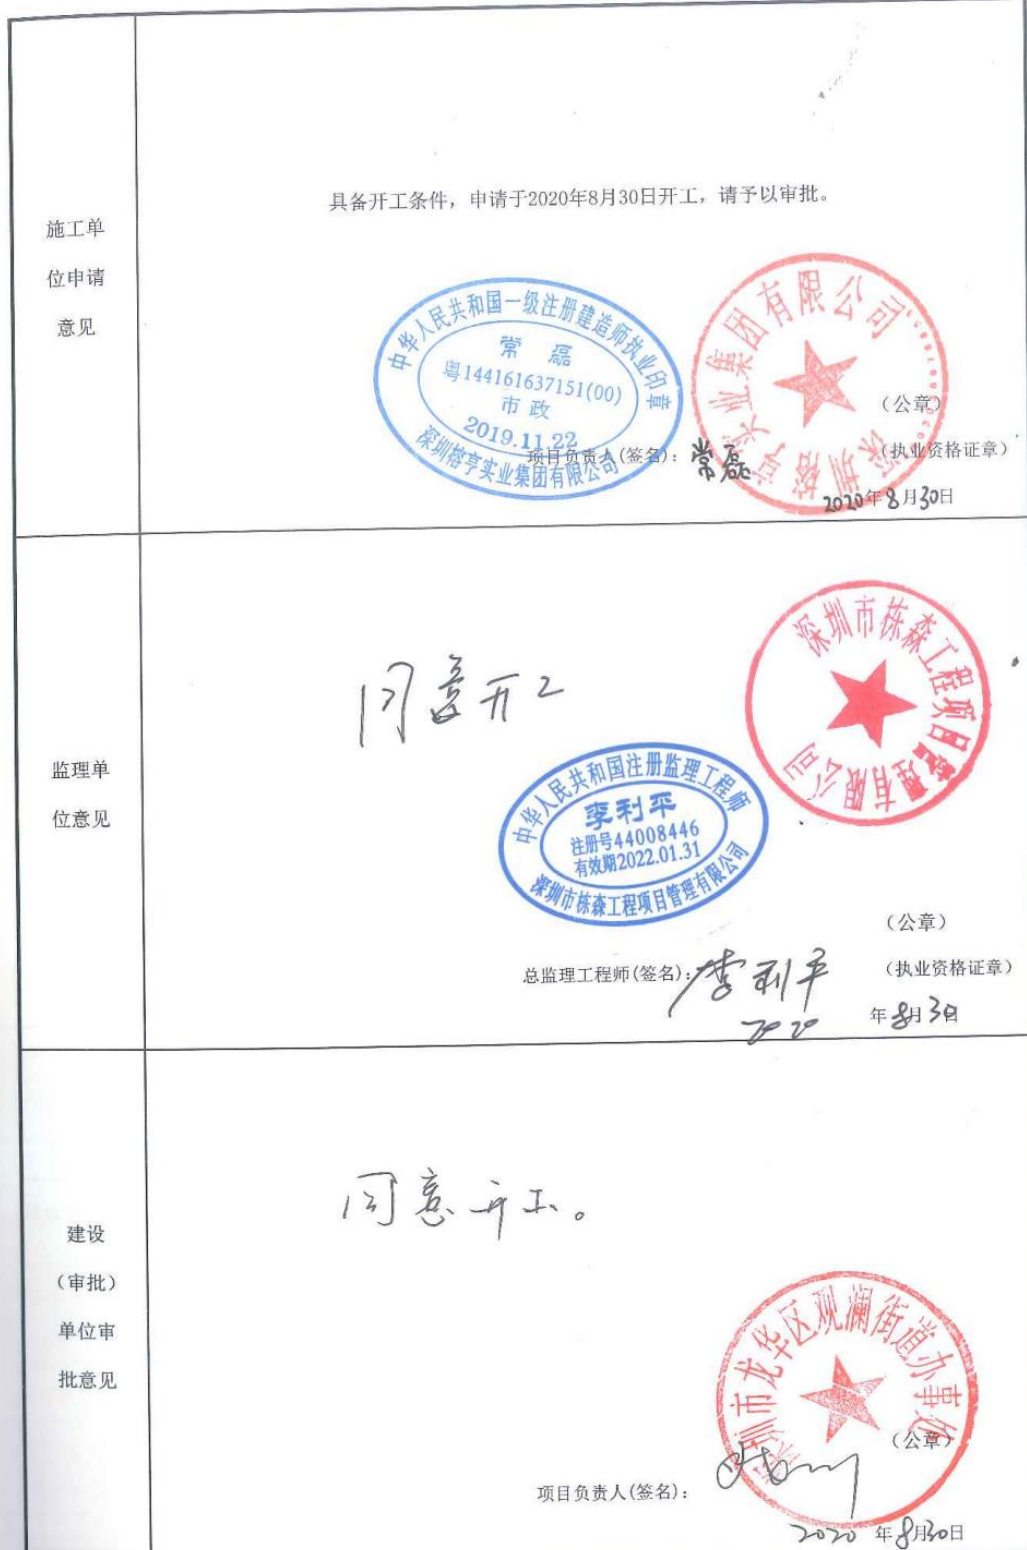 施工单
位申请
意见
具备开工条件，申请于2020年8月30日开工，请予以审批。
中华人民共和国一级注册建造师执业印章
常磊
粤144161637151(00)
市政
2019.11.22
深圳榕亨实业集团有限公司
深圳榕亨实业集团有限公司
（公章）
项目负责人(签名)：常磊
(执业资格证章)
2020年8月30日
监理单
位意见
同意开工
深圳市栋森工程项目管理有限公司
中华人民共和国注册监理工程师
李利平
注册号44008446
有效期2022.01.31
深圳市栋森工程项目管理有限公司
（公章）
总监理工程师(签名)：李利平
(执业资格证章)
2020年8月30日
建设
（审批）
单位审
批意见
同意开工。
深圳市龙华区观澜街道办事处
（公章）
项目负责人(签名)：
2020年8月30日